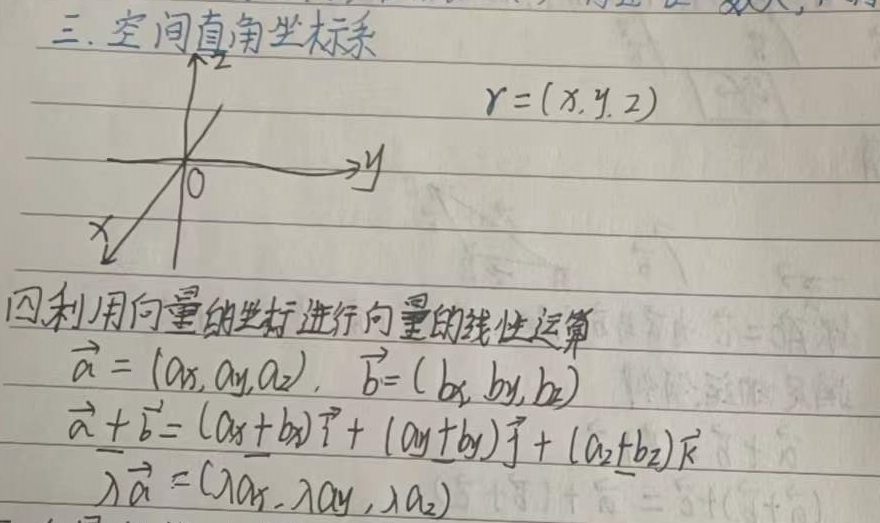 三.空间直角坐标系
z
r=(x.y.z)
y
O
x
四.利用向量的坐标进行向量的线性运算
a⃗ = (ax, ay, az). b⃗ = (bx, by, bz)
a⃗ ± b⃗ = (ax ± bx)i⃗ + (ay ± by)j⃗ + (az ± bz)k⃗
λa⃗ = (λax, λay, λaz)